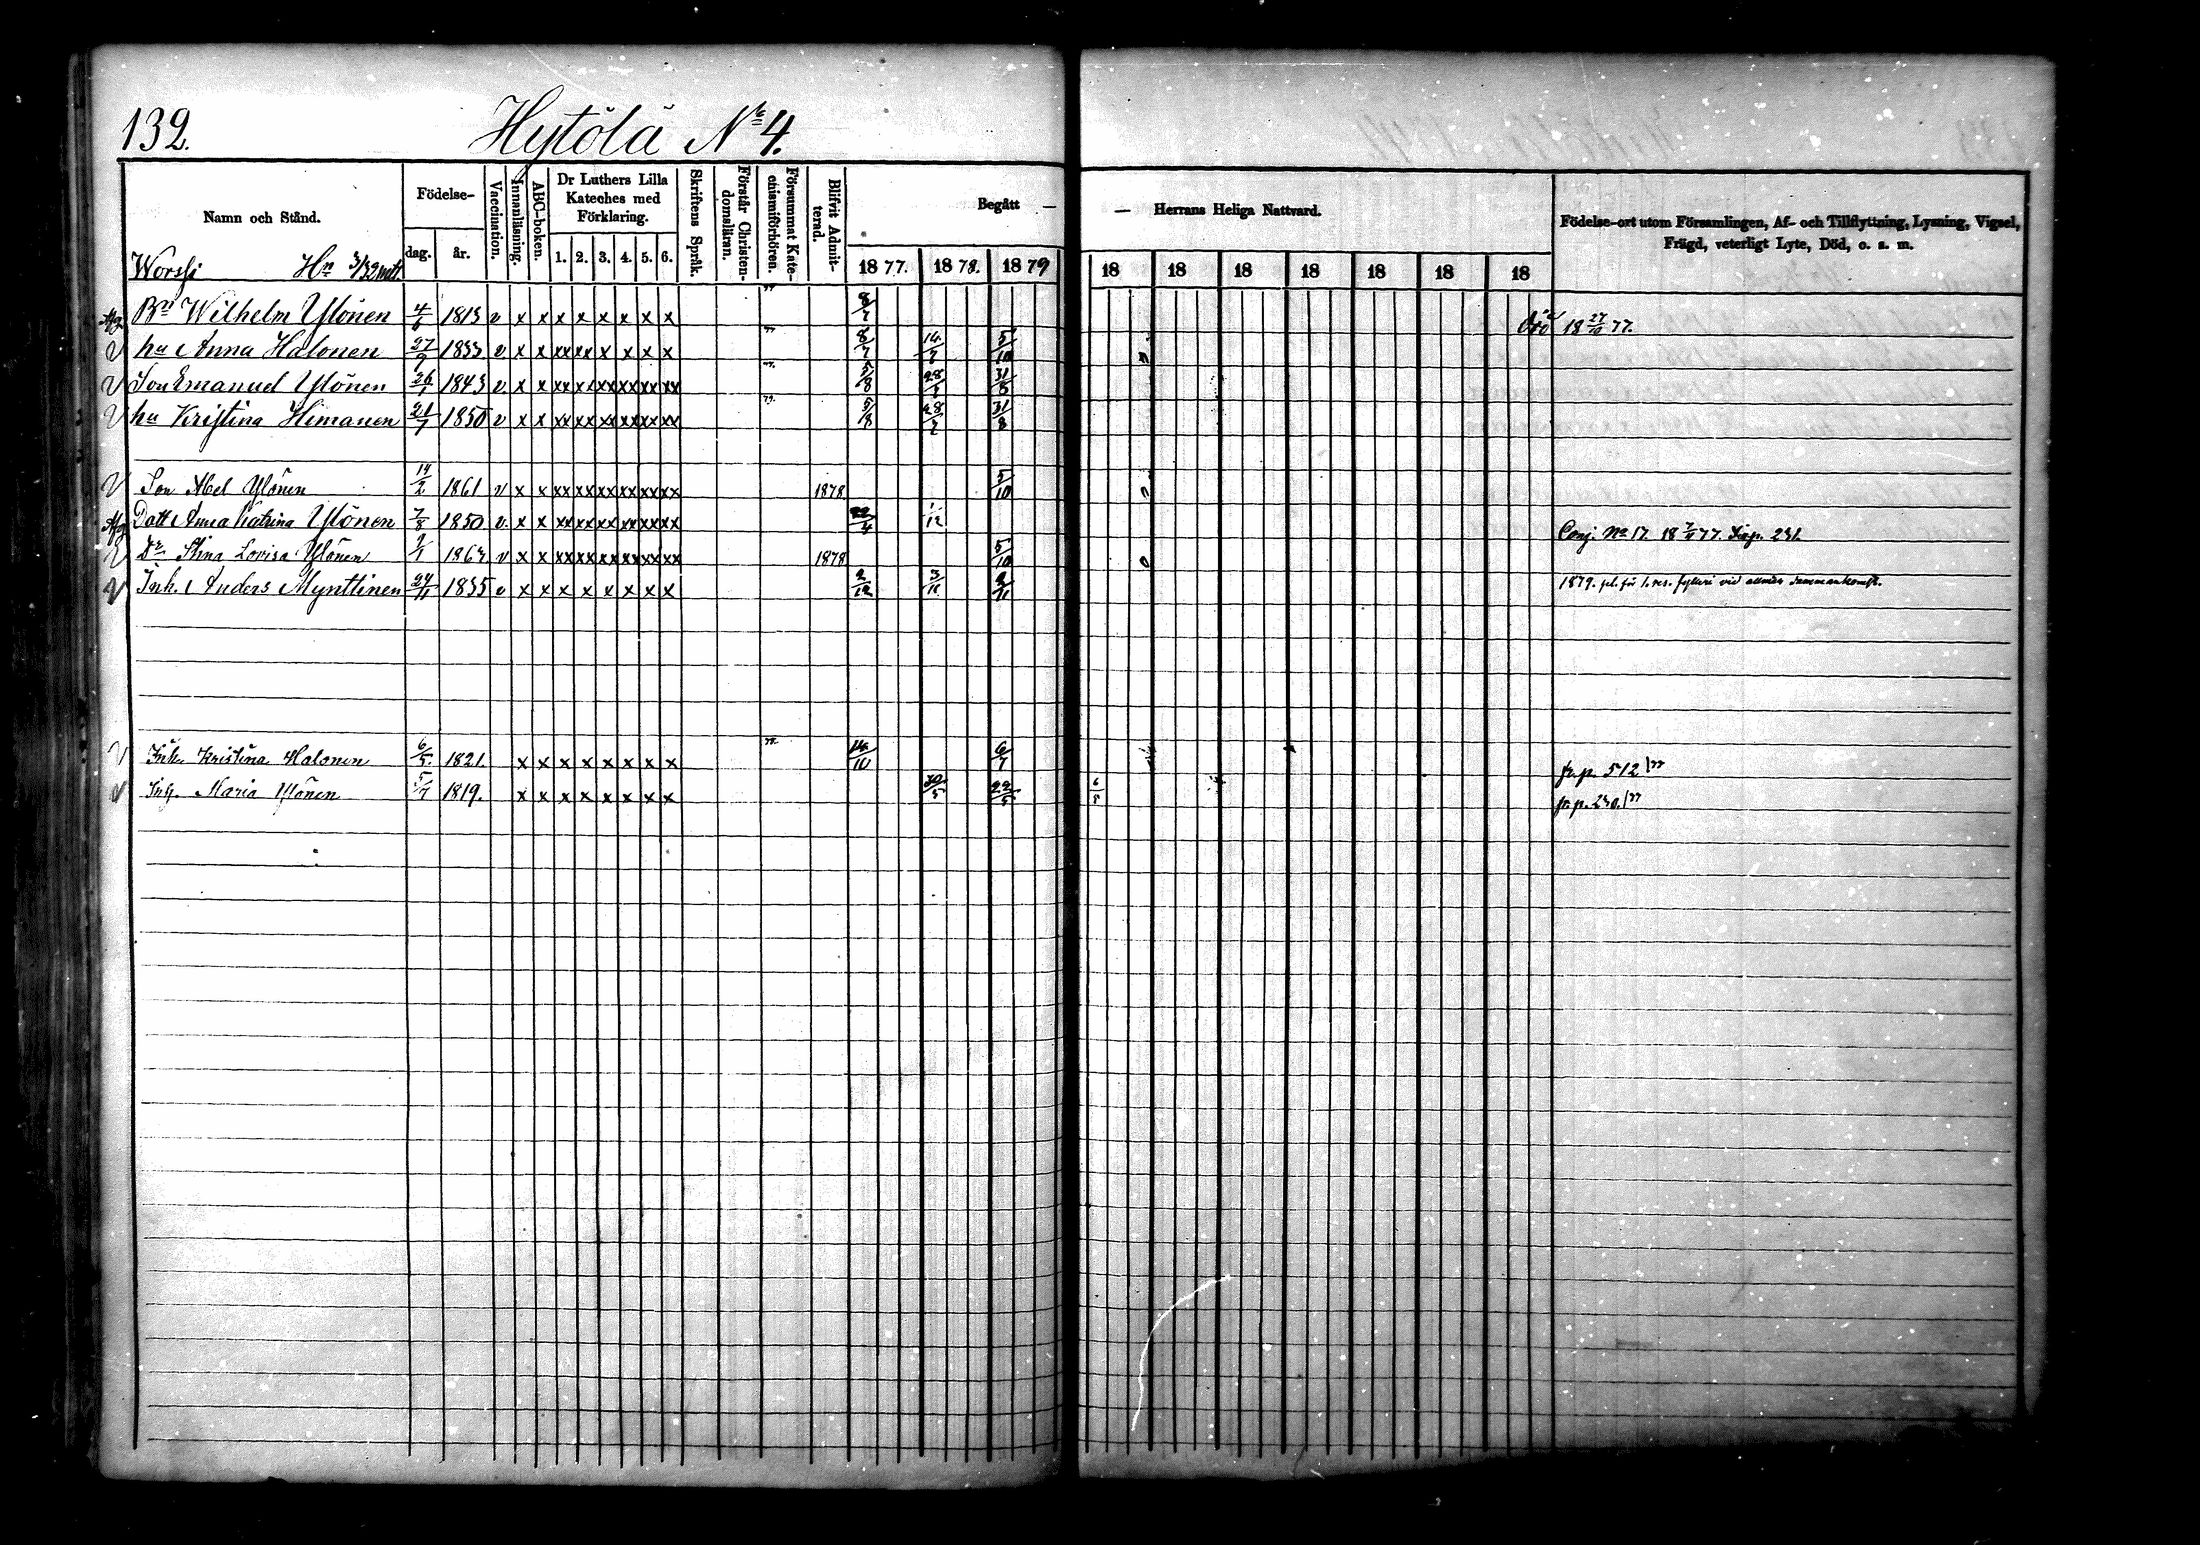 132. Hytölä No 4.
Namn och Stånd. Födelse- dag. år. Vaccination. Innanläsning. ABC-boken. Dr Luthers Lilla Kateches med Förklaring. 1. 2. 3. 4. 5. 6. Skriftens Språk. Förstår Christendomsläran. Försummat Katechismiförhören. Blifvit Admitterad. Begått — 1877. 1878. 1879
— Herrans Heliga Nattvard. 18 18 18 18 18 18 18 Födelse-ort utom Församlingen, Af- och Tillflyttning, Lysning, Vigsel, Frägd, veterligt Lyte, Död, o. s. m.
Worssi Hn 3/32 mtl.
Afg. Bn Wilhelm Ylönen 4/6 1813 v x x x x x x x x 77 8/7 död 18 27/10 77.
v hu Anna Halonen 27/9 1833 v x x xx x x x x x 77 8/7 14/7 5/10
v Son Emanuel Ylönen 26/1 1843 v x x xx xx xx xx xx xx 77. 5/8 28/7 31/8
v hu Kristina Himanen 21/7 1850 v x x xx xx xx xx xx xx 79. 5/8 28/7 31/8
v Son Abel Ylönen 14/2 1861 v x x xx xx xx xx xx xx 1878 5/10
Afg Dott Anna Katrina Ylönen 7/8 1850 v. x x xx xx xx xx xx xx 22/4 1/12 Conj. No 17. 18 7/11 77. 231.
v Dr Stina Lovisa Ylönen 1/1 v x x xx xx xx xx xx xx 1878 5/10
v Inh. Anders Mynttinen 24/11 1835 v x x x x x x x x 2/12 3/11 2/11 1879. pl. för 1. res. fylleri vid allmän sammankomst.
v Inh. Kristina Halonen 6/5 1821. x x x x x x x x 14/10 6/7 fr. p. 512/77
v Inh. Maria Ylönen 5/7 1819. x x x x x x x x 30/5 22/5 6/5 fr. p. 230./77